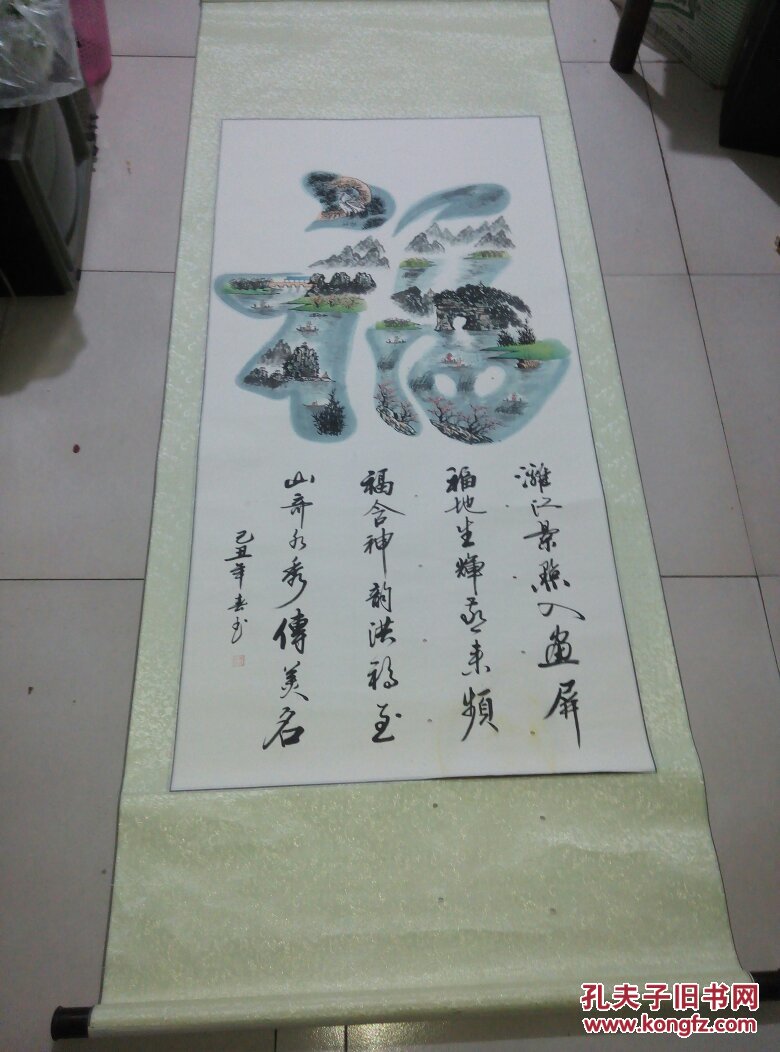 福
灕江景點入畫屏
福地生輝喜来頻
福含神韵洪福至
山奇水秀傳美名
己丑年春书
孔夫子旧书网
www.kongfz.com